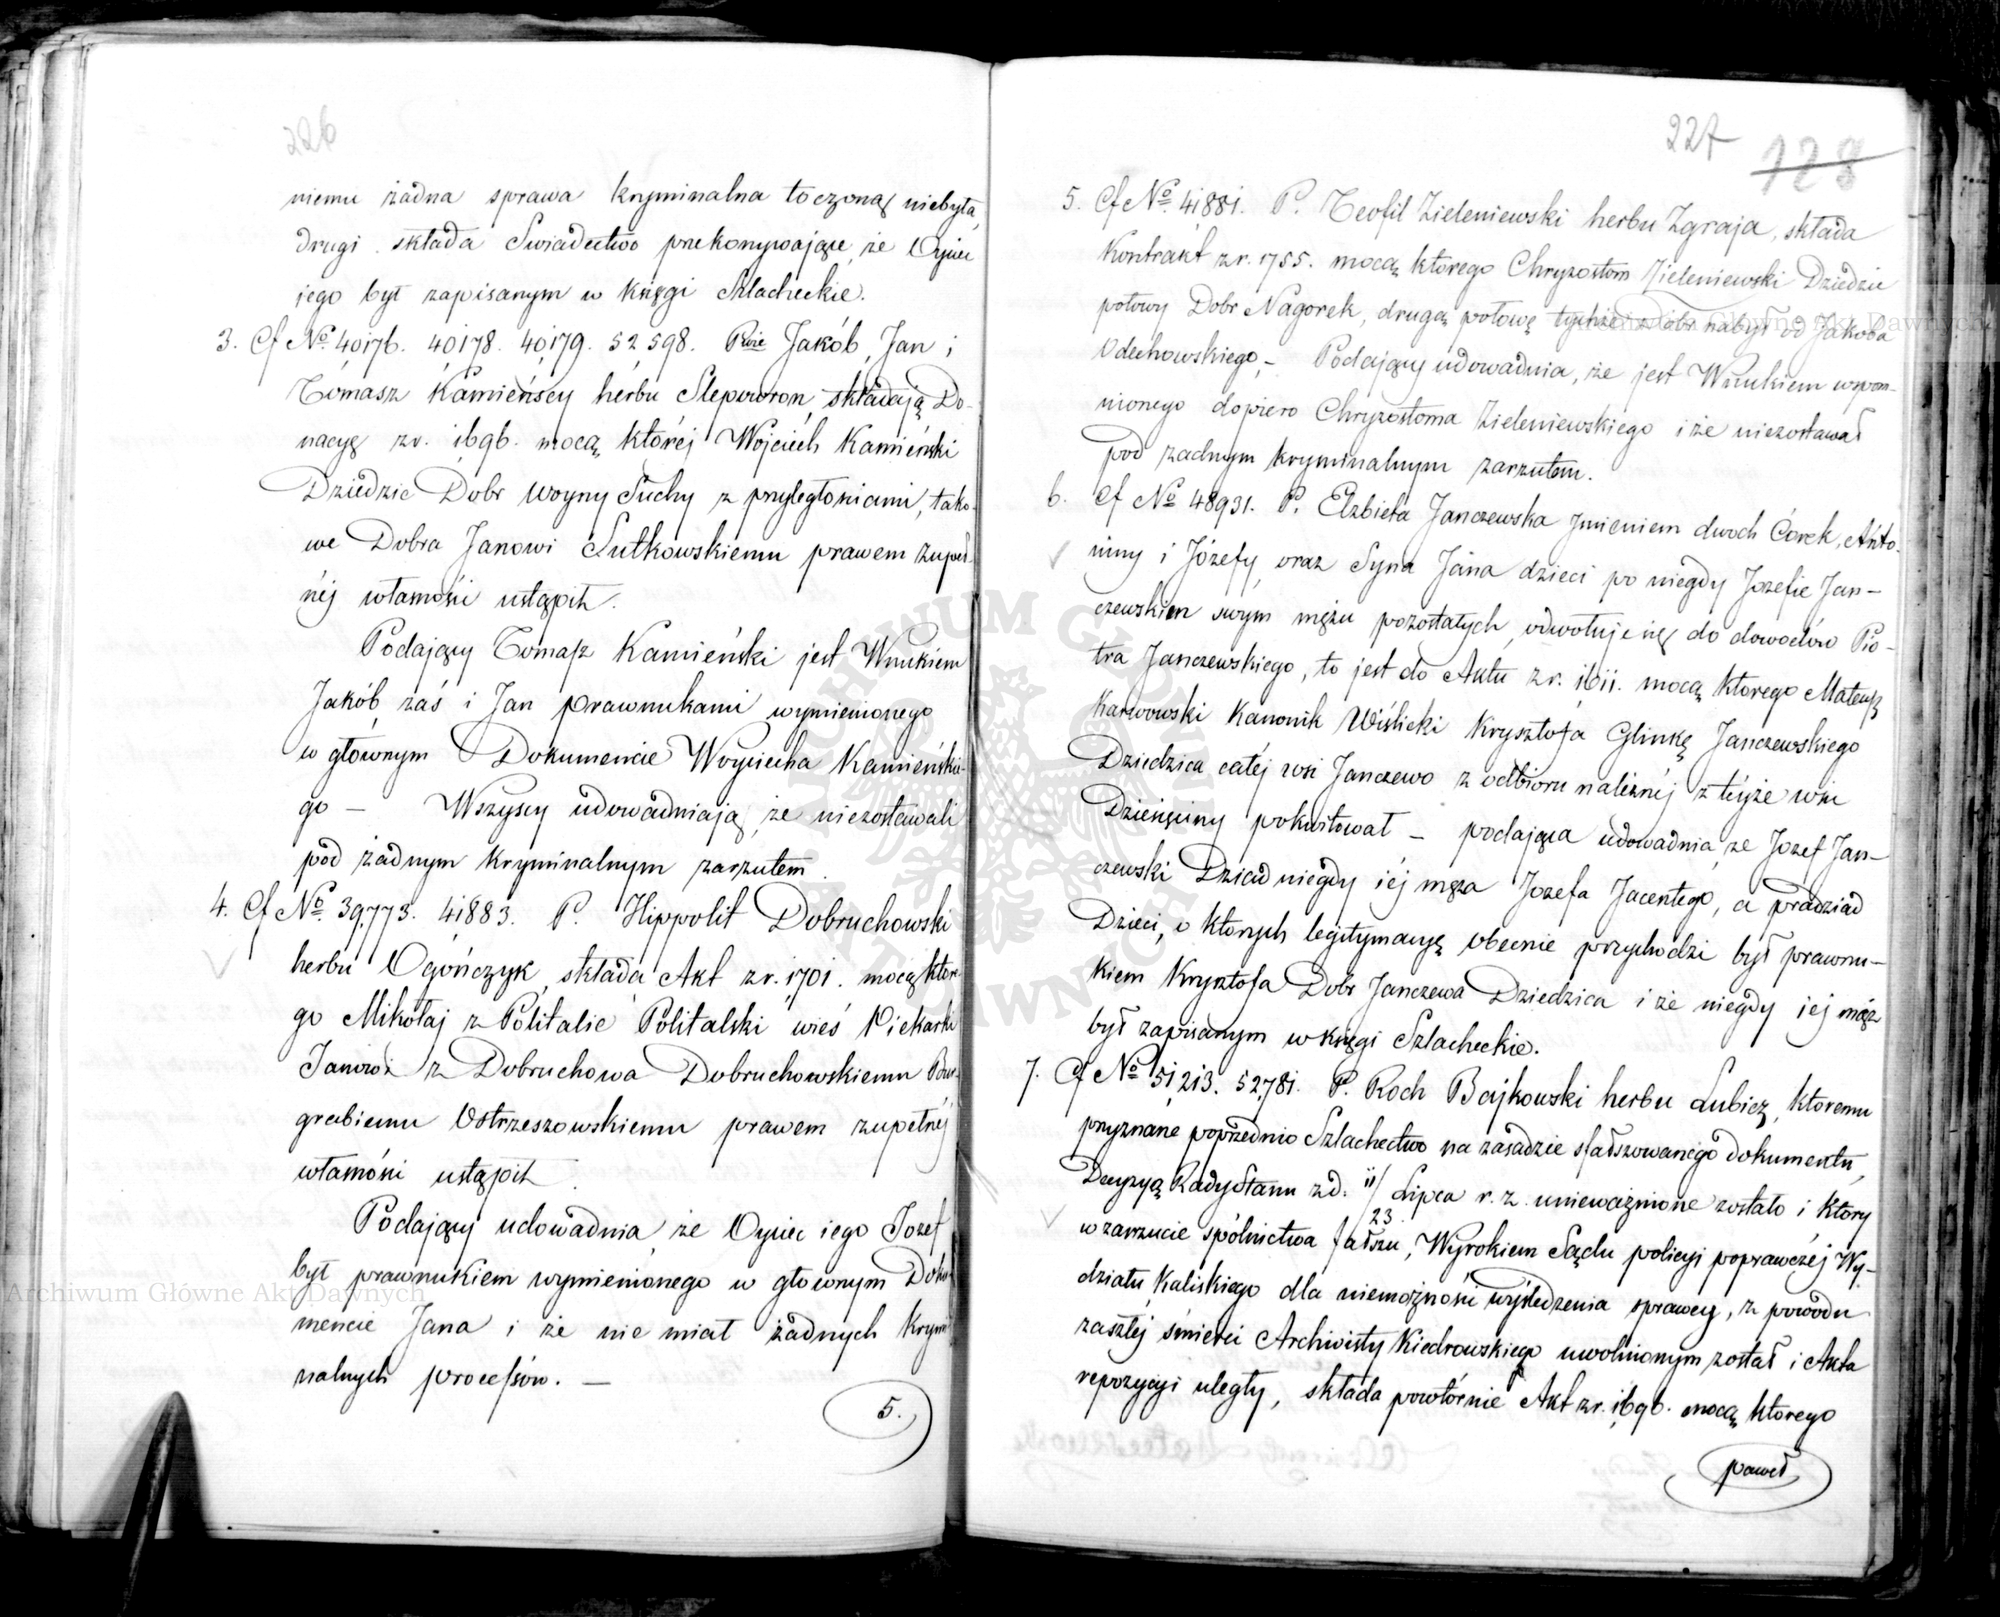 226
niemu żadna sprawa kryminalna toczoną niebyła
drugi składa Swiadectwo przekonywające, że Oyciec
jego był zapisanym w Księgi Szlacheckie.
3. Cf No. 40176. 40178. 40,179. 52,598. PPwie Jakób, Jan i
Tomasz Kamieńscy herbu Slepowron, składają Do-
nacyę z r. 1696. mocą któréj Wojciech Kamieński
Dziedzic Dobr Woyny Suchy z przyległościami, tako-
we Dobra Janowi Sutkowskiemu prawem zupeł-
néj własności ustąpił.
Podający Tomasz Kamieński jest Wnukiem
Jakób zaś i Jan prawnukami wymienionego
w głównym Dokumencie Woyciecha Kamieńskie-
go — Wszyscy udowadniają, że niezostawali
pod żadnym kryminalnym zarzutem.
4. Cf No. 39,773. 41883. P. Hippolit Dobruchowski
herbu Ogończyk, składa Akt z r. 1701. mocą które-
go Mikołaj z Politalic Politalski wieś Piekarki
Janowi z Dobruchowa Dobruchowskiemu Bur-
grabiemu Ostrzeszowskiemu prawem zupełnéj
własności ustąpił.
Podający udowadnia, że Oyciec iego Jozef
był prawnukiem wymienionego w głownym Doku-
mencie Jana i że nie miał żadnych krymi-
nalnych processów. —
5.
227 128
5. Cf No. 41881. P. Teofil Zieleniewski herbu Zgraja, składa
Kontrakt z r. 1755. mocą ktorego Chryzostom Zieleniewski Dziedzic
połowy Dobr Nagorek, drugą połowę tychże dobr nabył od Jakóba
Odechowskiego, — Podający udowadnia, że jest Wnukiem wspom-
nionego dopiero Chryzostoma Zieleniewskiego i że niezostawał
pod żadnym kryminalnym zarzutem.
6. Cf No 48931. P. Elzbieta Janczewska Jmieniem dwoch Córek, Anto-
niny i Józefy, oraz Syna Jana dzieci po niegdy Jozefie Jan-
czewskim swym mężu pozostałych, odwołuje się do dowodów Pio-
tra Janczewskiego, to jest do Aktu z r. 1611. mocą ktorego Mateusz
Karwowski Kanonik Wiślicki Krysztofa Glinkę Janczewskiego
Dziedzica całéj wsi Janczewo z odbioru należnéj z téyże wsi
Dziesięciny pokwitował — podająca udowadnia, że Jozef Jan-
czewski Dziad niegdy iéj męża Jozefa Jacentego, a pradziad
Dzieci, o ktorych legitymacyę obecnie przychodzi był prawnu-
kiem Krysztofa Dobr Janczewa Dziedzica i że niegdy jéj mąż
był zapisanym w księgi Szlacheckie.
7. Cf No 51,213. 52,781. P. Roch Bajkowski herbu Lubicz, ktoremu
przyznane poprzednio Szlachectwo na zasadzie sfałszowanego dokumentu,
Decyzyą Rady Stanu z d. 11/23 Lipca r. z. unieważnione zostało i który
w zarzucie spólnictwa fałszu, Wyrokiem Sądu policyi poprawczéj Wy-
działu Kaliskiego dla niemożności wyśledzenia sprawcy, z powodu
zaszłéj śmierci Archiwisty Kiedrowskiego uwolnionym został i Akta
repozycyi uległy, składa powtórnie Akt z r. 1696. mocą ktorego
Paweł
Archiwum Główne Akt Dawnych
Archiwum Główne Akt Dawnych
ARCHIWUM GŁÓWNE AKT DAWNYCH